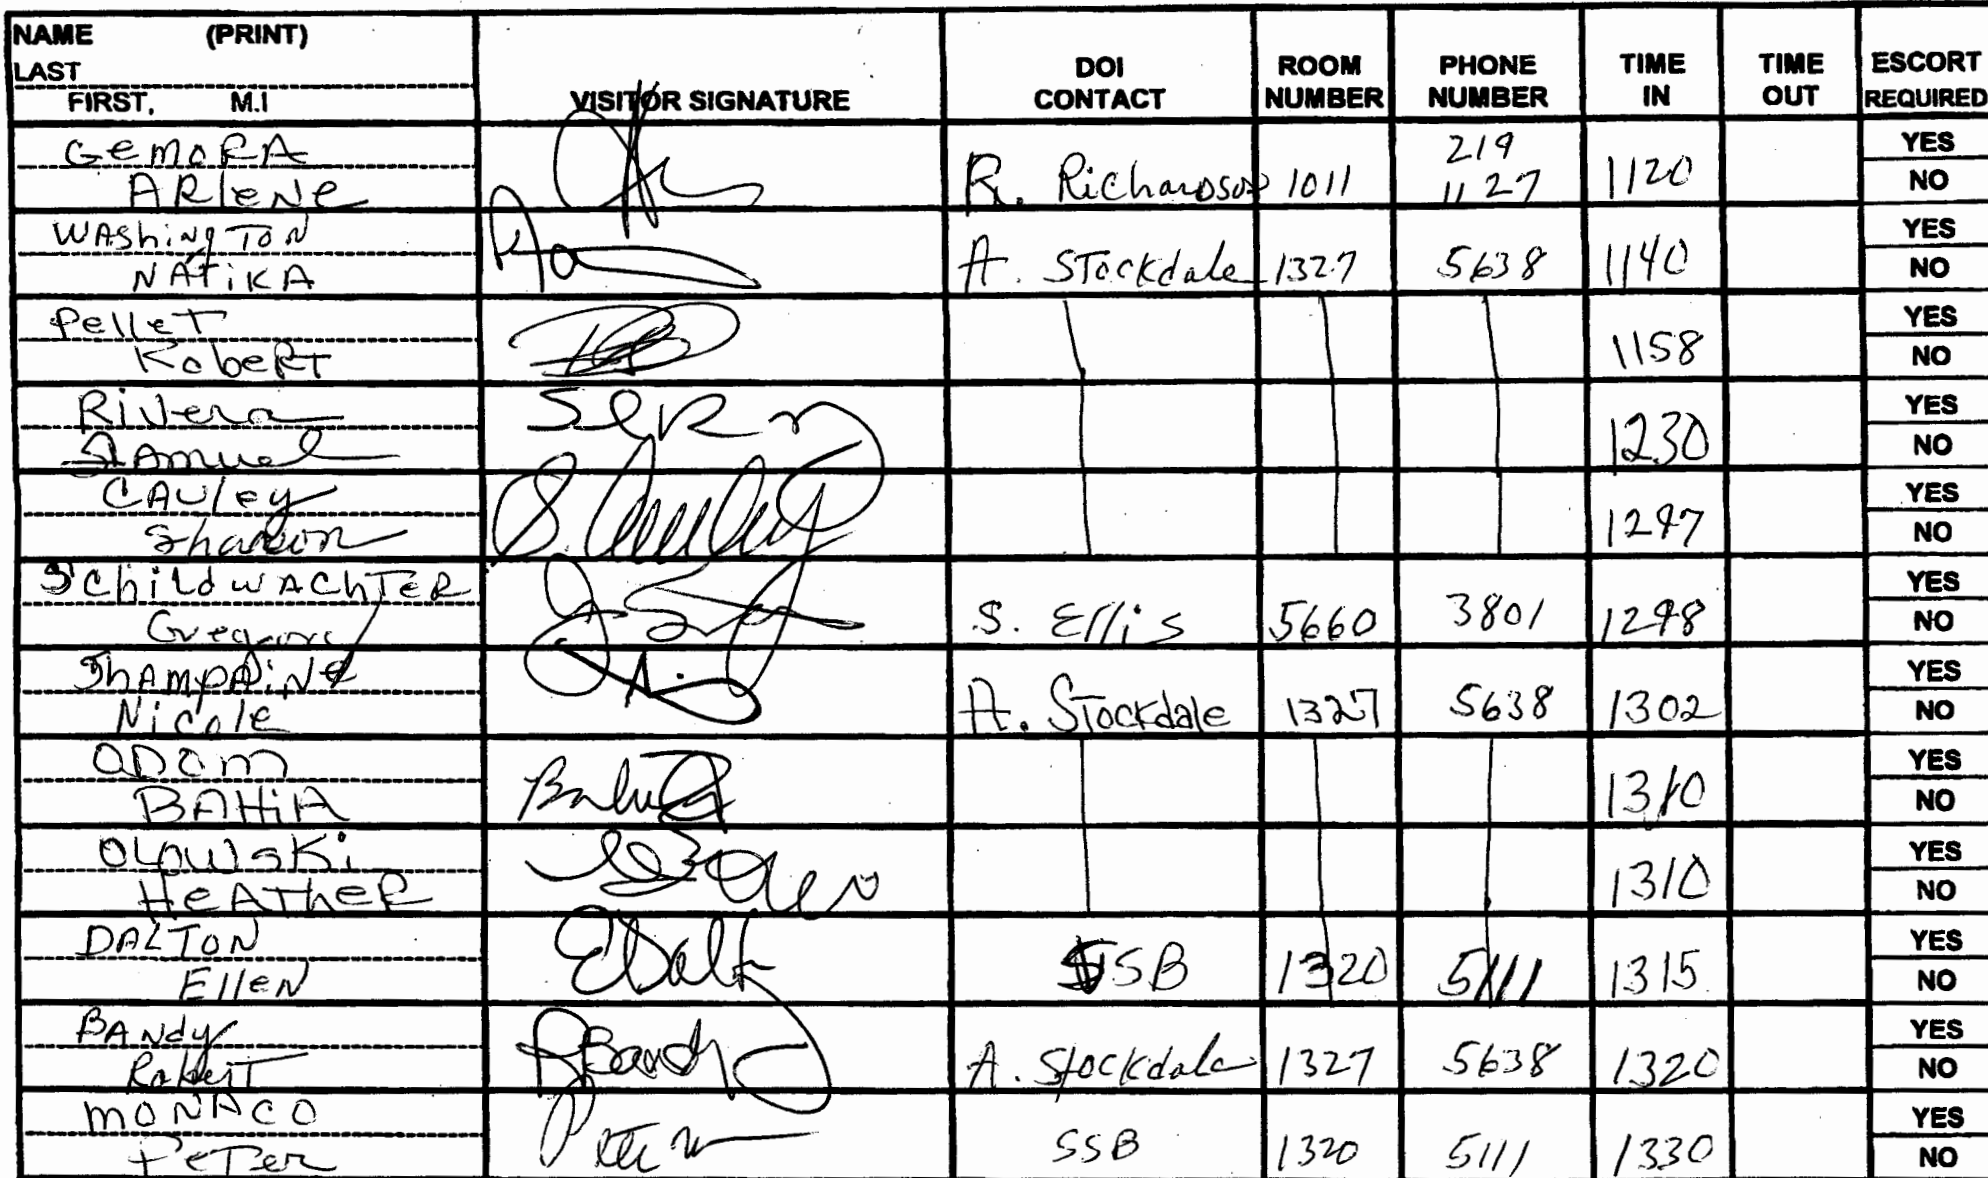 NAME (PRINT)
LAST
FIRST, M.I
VISITOR SIGNATURE
DOI CONTACT
ROOM NUMBER
PHONE NUMBER
TIME IN
TIME OUT
ESCORT REQUIRED
GEMORA
ARLENE
R. Richardson 1011 219 1127 1120 YES NO
WAShiNgTON
NATiKA
A. Stockdale 1327 5638 1140 YES NO
PelleT
RobeRT
1158 YES NO
RiVera
SAmuel
1230 YES NO
CAUley
Sharon
S. Cauley
1247 YES NO
SChildwAChTER
Gregory
S. Ellis 5660 3801 1248 YES NO
ShAMpAiNe
Nicole
A. Stockdale 1327 5638 1302 YES NO
ODOm
BAHiA
1310 YES NO
OLOWSKi
HEATHeR
1310 YES NO
DALTON
EllEN
EDalt
SSB 1320 5111 1315 YES NO
BANdy
RobeRT
RBandy
A. Stockdale 1327 5638 1320 YES NO
MONACO
PeTer
SSB 1320 5111 1330 YES NO